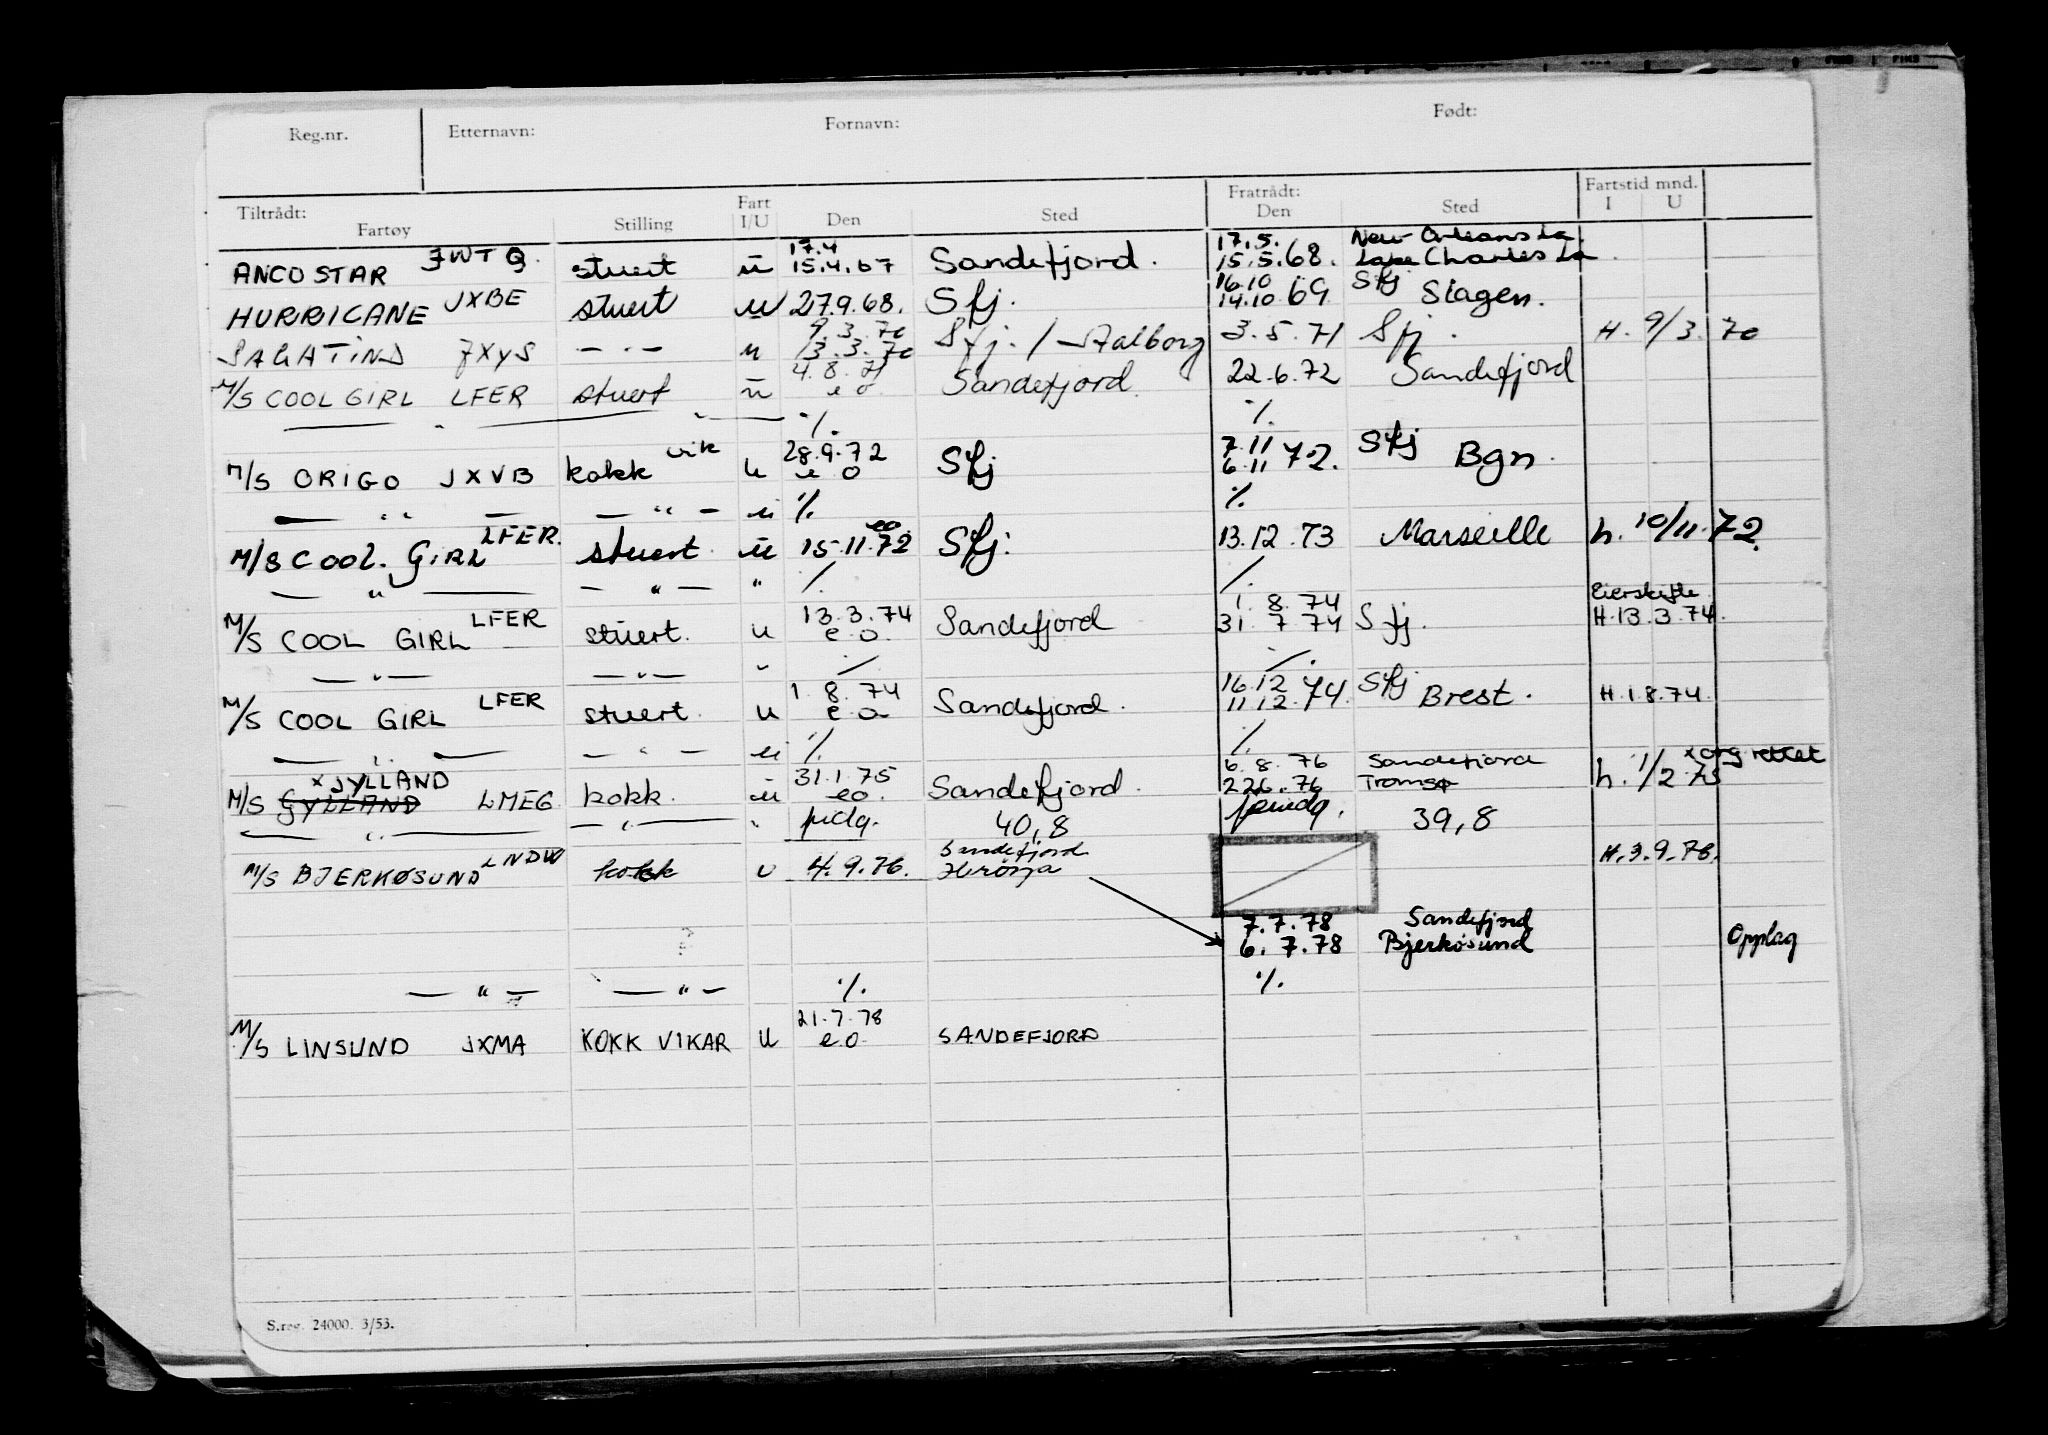 Reg.nr. Etternavn: Fornavn: Født:
Tiltrådt: Fart Fratrådt: Fartstid mnd.
Fartøy Stilling I/U Den Sted Den Sted I U
17.4 17.5. New Orleans La.
ANCO STAR JWTQ stuert u 15.4.67 Sandefjord. 15.5.68. Lake Charles La
16.10 Sfj
HURRICANE JXBE stuert u 27.9.68. Sfj. 14.10 69 Slagen.
9.3.70
SAGATIND JXYS — " — u 13.3.70 Sfj. / Aalborg 3.5.71 Sfj. H. 9/3. 70
4.8.71
M/S COOL GIRL LFER stuert u e o Sandefjord. 22.6.72 Sandefjord
— " — — " — ·/. ·/.
vik 28.9.72 7.11 Sfj
M/S ORIGO JXVB kokk u e o Sfj 6.11 72. Bgn.
— " — — " — u ·/. ·/.
LFER. eo
M/S COOL. GIRL stuert. u 15.11.72 Sfj. 13.12.73 Marseille h. 10/11.72.
— " — — " — " ·/. ·/.
LFER 13.3.74 1.8.74 Eierskifte
M/S COOL GIRL stuert. u e o. Sandefjord 31.7 74 Sfj. H.13.3.74.
— " — — " — " ·/. ·/.
LFER 1.8.74 16.12 Sfj
M/S COOL GIRL stuert. u e o Sandefjord. 11.12.74. Brest. H.1.8.74.
— " — — " — u ·/. ·/.
x JYLLAND 31.1.75 6.8.76 Sandefjord x org rettet
M/S GYLLAND LMEG kokk. u eo. Sandefjord. 22.6.76 Tromsø h. 1/2 75
— " — — " — " 40,8 39,8
LNDW Sandefjord
M/S BJERKØSUND kokk u 4.9.76. Herøya H.3.9.76.
7.7.78 Sandefjord
6.7.78 Bjerkøsund Opplag
— " — — " — ·/. ·/.
21.7.78
M/S LINSUND JXMA KOKK VIKAR U e o. SANDEFJORD
S.reg. 24000. 3/53.